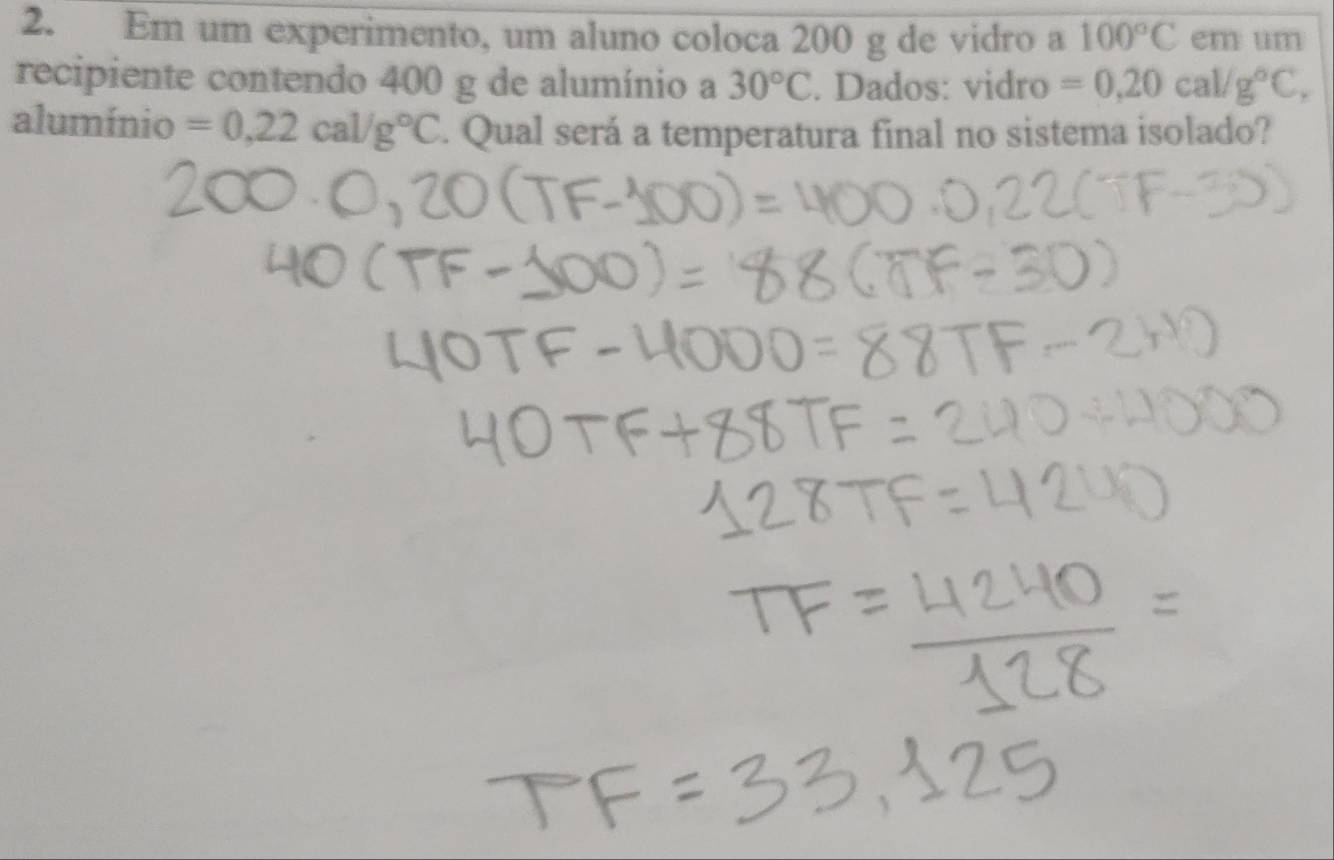 2. Em um experimento, um aluno coloca 200 g de vidro a 100°C em um
recipiente contendo 400 g de alumínio a 30°C. Dados: vidro = 0,20 cal/g°C,
alumínio = 0,22 cal/g°C. Qual será a temperatura final no sistema isolado?
200.0,20(TF-100)=400.0,22(TF-30)
40(TF-100)=88(TF-30)
40TF-4000=88TF-240
40TF+88TF=240+4000
128TF=4240
TF=4240/128=
TF=33,125